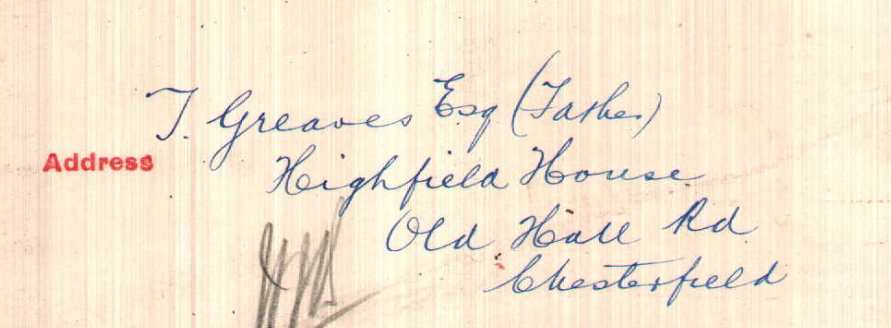 T. Greaves Esq (Father)
Address
Highfield House
Old Hall Rd
Chesterfield